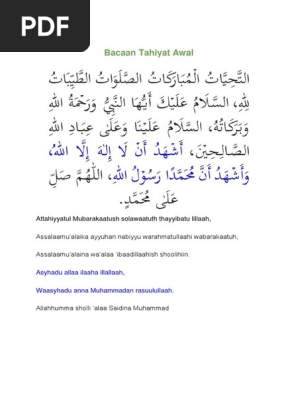 PDF
Bacaan Tahiyat Awal
التَّحِيَّاتُ الْمُبَارَكَاتُ الصَّلَوَاتُ الطَّيِّبَاتُ
لِلَّهِ، السَّلَامُ عَلَيْكَ أَيُّهَا النَّبِيُّ وَرَحْمَةُ اللهِ
وَبَرَكَاتُهُ، السَّلَامُ عَلَيْنَا وَعَلَىٰ عِبَادِ اللهِ
الصَّالِحِيْنَ، أَشْهَدُ أَنْ لَا إِلٰهَ إِلَّا اللهُ،
وَأَشْهَدُ أَنَّ مُحَمَّدًا رَسُوْلُ اللهِ، اللَّهُمَّ صَلِّ
عَلَىٰ مُحَمَّدٍ.
Attahiyyatul Mubarakaatush solawaatuth thayyibatu lillaah,
Assalaamu'alaika ayyuhan nabiyyu warahmatullaahi wabarakaatuh,
Assalaamu'alaina wa'alaa 'ibaadillaahish shoolihiin.
Asyhadu allaa ilaaha illallaah,
Waasyhadu anna Muhammadan rasuulullaah.
Allahhumma sholli 'alaa Saidina Muhammad